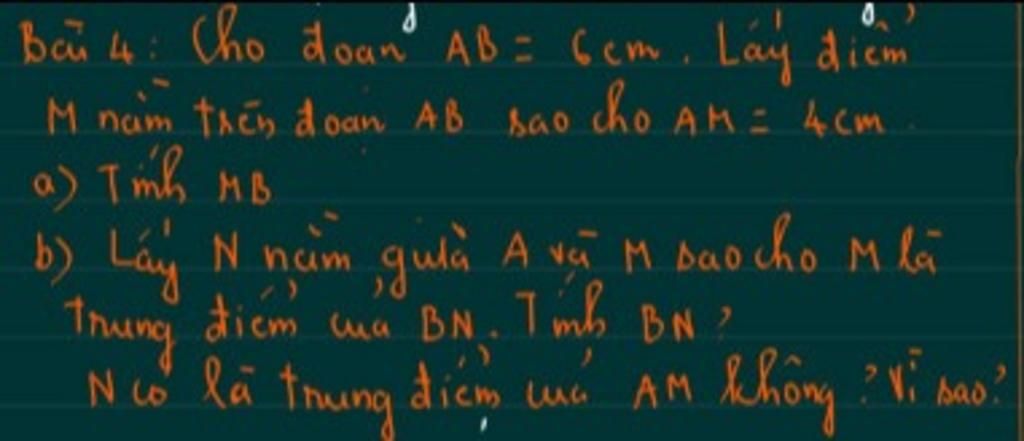 Bài 4: Cho đoạn AB = 6cm. Lấy điểm
M nằm trên đoạn AB sao cho AM = 4cm.
a) Tính MB
b) Lấy N nằm giữa A và M sao cho M là
trung điểm của BN. Tính BN?
N có là trung điểm của AM không? Vì sao?